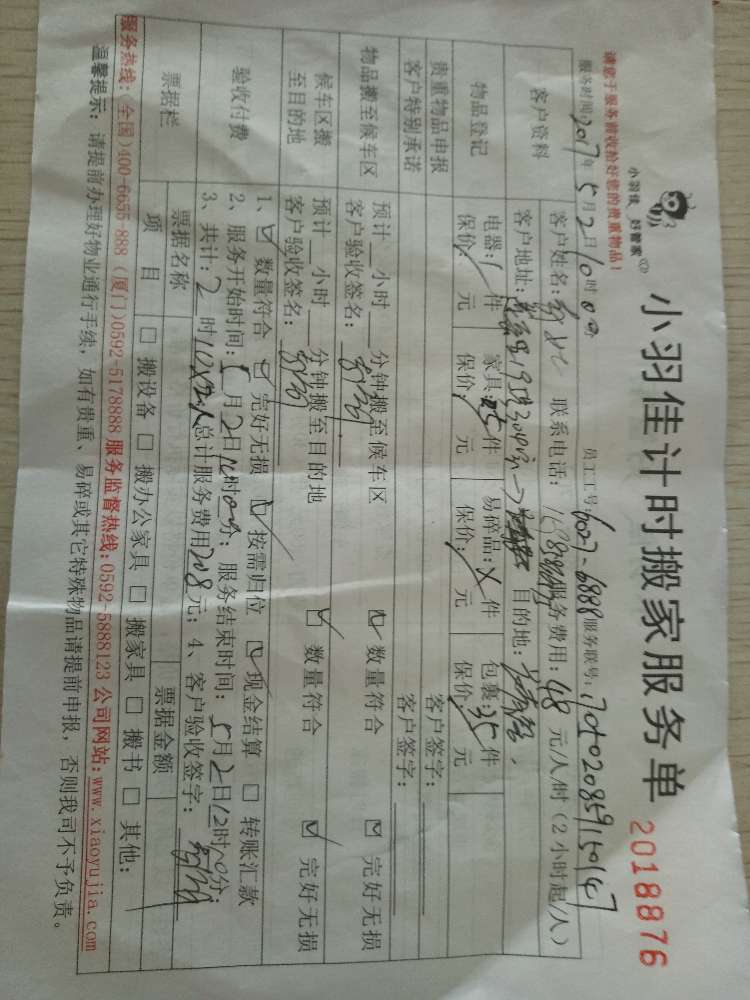 小羽佳 好管家
小羽佳计时搬家服务单 2018876
请您于服务前收拾好您的贵重物品!
服务时间:2017年5月2日10时00分 员工工号:6007-6888 服务联号:
客户资料 客户姓名: 联系电话: 服务费用:48元/人/时(2小时起/人)
客户地址: 目的地:
物品登记 电器:1件 家具:5件 易碎品:X件 包裹:35件
保价: 元 保价: 元 保价: 元 保价: 元
贵重物品申报 客户签字:
客户特别承诺 客户签字:
物品搬至候车区 预计 小时 分钟搬至候车区 ☑ 数量符合 ☑ 完好无损
客户验收签名:
候车区搬至目的地 预计 小时 分钟搬至目的地 ☑ 数量符合 ☑ 完好无损
客户验收签名:
验收付费 1、☑ 数量符合 ☑ 完好无损 ☑ 按需归位 ☑ 现金结算 □ 转账汇款
2、服务开始时间:5月2日10时00分; 服务结束时间:5月2日12时10分;
3、共计:2时 总计服务费用208元; 4、客户验收签字:
票据栏 票据名称 票据金额
项目 □ 搬设备 □ 搬办公家具 □ 搬家具 □ 搬书 □ 其他:
服务热线:(全国)400-6655-888 (厦门)0592-5178888 服务监督热线:0592-5888123 公司网站:www.xiaoyujia.com
温馨提示: 请提前办理好物业通行手续, 如有贵重、易碎或其它特殊物品请提前申报, 否则我司不予负责。